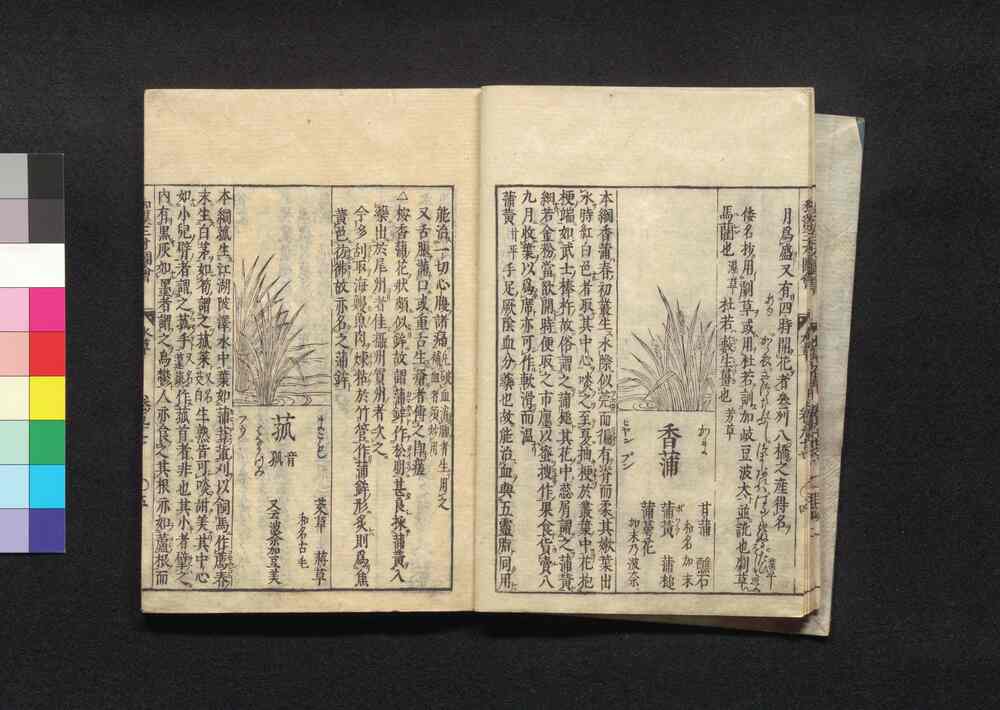 月爲盛又有四時開花者參列八橋之産得名
倭名抄用劇草或用杜若訓加岐豆波太並訛也劇草
馬藺也 濕草 杜若 藪生薑也 芳草
香蒲
甘蒲 醮石
和名加末
蒲黃 蒲槌
蒲蕚花
和名加末乃波奈
本綱香蒲春初叢生水際似莞而褊有脊而柔其嫩葉出
水時紅白色者取其中心啖之至夏抽梗於叢葉中花抱
梗端如武士棒杵故俗謂之蒲槌其花中蕊屑謂之蒲黃
細若金粉當欲開時便取之市廛以蜜搜作果食貨賣八
九月收葉以爲席亦可作軟滑而溫
蒲黃 甘平 手足厥陰血分藥也故能治血與五靈脂同用
能治一切心腹諸痛
又舌脹滿口或重舌生瘡者傅之即瘥
△按香蒲花狀頗似鉾故謂蒲鉾作松明甚良揀蒲黃入
藥出於尾州者佳攝州賀州者次之
今多刮取海鰻魚肉煉推於竹管作蒲鉾形炙則爲焦
黃色彷彿故亦名之蒲鉾
菰
音孤
茭草 蔣草
和名古毛
又云波奈加豆美
本綱菰生江湖陂澤水中葉如蒲葦刈以飼馬作薦春
末生白茅如筍謂之菰菜 生熟皆可啖甜美其中心
如小兒臂者謂之菰手 作菰首者非也其小者擘之
內有黑灰如墨者謂之烏鬱人亦食之其根亦如蘆根而